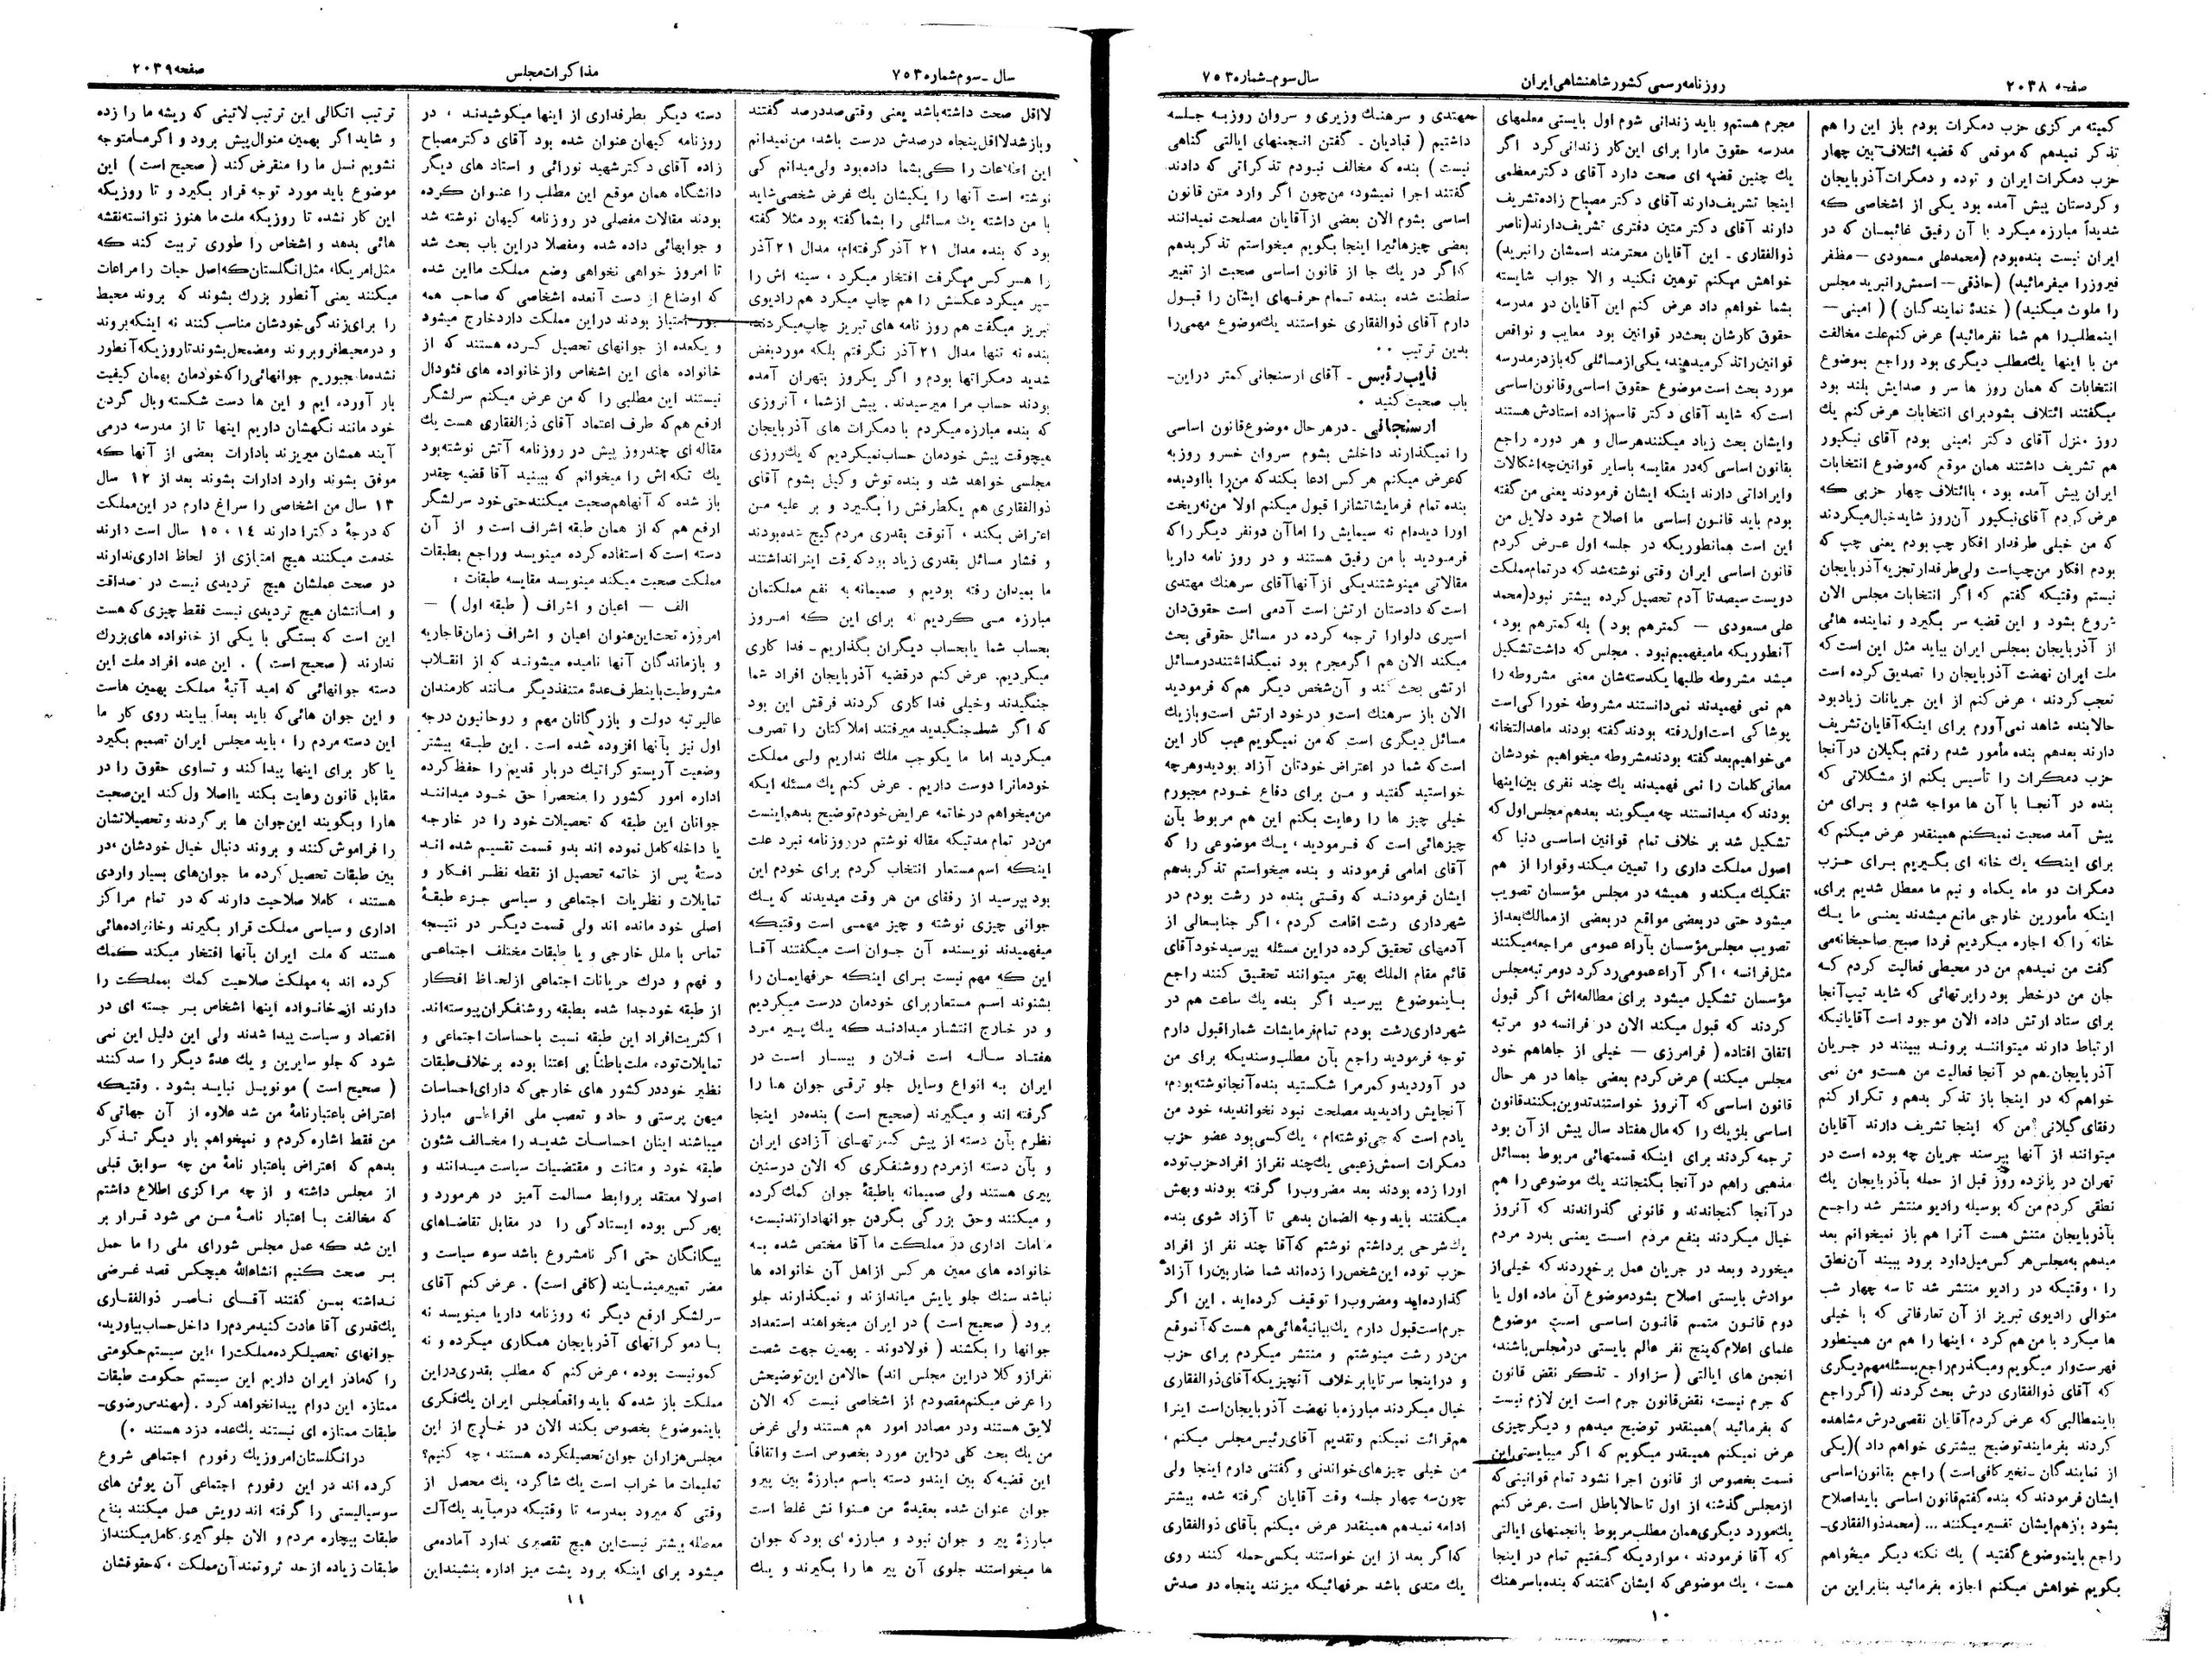 صفحه ۲۰۳۸
روزنامه رسمی کشور شاهنشاهی ایران
سال سوم-شماره ۷۵۳
کمیته مرکزی حزب دمکرات بودم باز این را هم
تذکر نمیدهم که موقعی که قضیه ائتلاف بین چهار
حزب دمکرات ایران و توده و دمکرات آذربایجان
و کردستان پیش آمده بود یکی از اشخاصی که
شدیداً مبارزه میکرد با آن رفیق غائبمان که در
ایران نیست بنده بودم (محمدعلی مسعودی - مظفر
فیروز را میفرمائید) (حاذقی - اسمش را نبرید مجلس
را ملوث میکنید) (خندهٔ نمایندگان) (امینی -
اینمطلب را هم شما نفرمائید) عرض کنم علت مخالفت
من با اینها یک مطلب دیگری بود و راجع بموضوع
انتخابات که همان روز ها سر و صدایش بلند بود
میگفتند ائتلاف بشود برای انتخابات عرض کنم یک
روز منزل آقای دکتر امینی بودم آقای نیکپور
هم تشریف داشتند همان موقع که موضوع انتخابات
ایران پیش آمده بود ، با ائتلاف چهار حزبی که
عرض کردم آقای نیکپور آن روز شاید خیال میکردند
که من خیلی طرفدار افکار چپ بودم یعنی چپ که
بودم افکار من چپ است ولی طرفدار تجزیه آذربایجان
نیستم وقتیکه گفتم که اگر انتخابات مجلس الان
شروع بشود و این قضیه سر بگیرد و نماینده هائی
از آذربایجان بمجلس ایران بیاید مثل این است که
ملت ایران نهضت آذربایجان را تصدیق کرده است
تعجب کردند ، عرض کنم از این جریانات زیاد بود
حالا بنده شاهد نمی آورم برای اینکه آقایان تشریف
دارند بعد هم بنده مأمور شدم رفتم بگیلان در آنجا
حزب دمکرات را تأسیس بکنم از مشکلاتی که
بنده در آنجا با آن ها مواجه شدم و برای من
پیش آمد صحبت نمیکنم همینقدر عرض میکنم که
برای اینکه یك خانه ای بگیریم برای حزب
دمکرات دو ماه یکماه و نیم ما معطل شدیم برای
اینکه مأمورین خارجی مانع میشدند یعنی ما یك
خانه را که اجاره میکردیم فردا صبح صاحبخانه می
گفت من نمیدهم من در محیطی فعالیت کردم که
جان من در خطر بود راپرتهائی که شاید تیپ آنجا
برای ستاد ارتش داده الان موجود است آقایانیکه
ارتباط دارند میتوانند بروند ببینند در جریان
آذربایجان هم در آنجا فعالیت من هست و من نمی
خواهم که در اینجا باز تذکر بدهم و تکرار کنم
رفقای گیلانی من که اینجا تشریف دارند آقایان
میتوانند از آنها بپرسند جریان چه بوده است در
تهران در پانزده روز قبل از حمله بآذربایجان یك
نطقی کردم من که بوسیله رادیو منتشر شد راجع
بآذربایجان متنش هست آنرا هم باز نمیخوانم بعد
میدهم به مجلس هر کس میل دارد برود ببیند آن نطق
را ، وقتیکه در رادیو منتشر شد تا سه چهار شب
متوالی رادیوی تبریز از آن تعارفاتی که با خیلی
ها میکرد با من هم کرد ، اینها را هم من همینطور
فهرست وار میگویم و میگذرم راجع بمسئله مهم دیگری
که آقای ذوالفقاری درش بحث کردند (اگر راجع
باینمطالبی که عرض کردم آقایان نقصی درش مشاهده
کردند بفرمایند توضیح بیشتری خواهم داد) (یکی
از نمایندگان - نخیر کافی است) راجع بقانون اساسی
ایشان فرمودند که بنده گفتم قانون اساسی باید اصلاح
بشود باز هم ایشان تفسیر میکنند ... (محمد ذوالفقاری -
راجع باینموضوع گفتید) یك نکته دیگر میخواهم
بگویم خواهش میکنم اجازه بفرمائید بنابراین من
مجرم هستم و باید زندانی شوم اول بایستی معلمهای
مدرسه حقوق ما را برای این کار زندانی کرد اگر
یك چنین قضیه ای صحت دارد آقای دکتر معظمی
اینجا تشریف دارند آقای دکتر مصباح زاده تشریف
دارند آقای دکتر متین دفتری تشریف دارند (ناصر
ذوالفقاری - این آقایان محترمند اسمشان را نبرید)
خواهش میکنم توهین نکنید و الا جواب شایسته
بشما خواهم داد عرض کنم این آقایان در مدرسه
حقوق کارشان بحث در قوانین بود معایب و نواقص
قوانین را تذکر میدهند، یکی از مسائلی که باز در مدرسه
مورد بحث است موضوع حقوق اساسی و قانون اساسی
است که شاید آقای دکتر قاسم زاده استادش هستند
و ایشان بحث زیاد میکنند هر سال و هر دوره راجع
بقانون اساسی که در مقایسه با سایر قوانین چه اشکالات
و ایراداتی دارند اینکه ایشان فرمودند یعنی من گفته
بودم باید قانون اساسی ما اصلاح شود دلایل من
این است همانطوریکه در جلسه اول عرض کردم
قانون اساسی ایران وقتی نوشته شد که در تمام مملکت
دویست سیصد تا آدم تحصیل کرده بیشتر نبود (محمد
علی مسعودی - کمتر هم بود) بله کمتر هم بود ،
آنطوریکه ما میفهمیم نبود . مجلس که داشت تشکیل
میشد مشروطه طلبها یکدسته شان معنی مشروطه را
هم نمی فهمیدند نمی دانستند مشروطه خوراکی است
پوشاکی است اول رفته بودند گفته بودند ما عدالتخانه
می خواهیم بعد گفته بودند مشروطه میخواهیم خودشان
معانی کلمات را نمی فهمیدند یك چند نفری بین اینها
بودند که میدانستند چه میگویند بعد هم مجلس اول که
تشکیل شد بر خلاف تمام قوانین اساسی دنیا که
اصول مملکت داری را تعیین میکند و قوا را از هم
تفکیك میکند و همیشه در مجلس مؤسسان تصویب
میشود حتی در بعضی مواقع در بعضی از ممالك بعد از
تصویب مجلس مؤسسان بآراء عمومی مراجعه میکنند
مثل فرانسه ، اگر آراء عمومی رد کرد دو مرتبه مجلس
مؤسسان تشکیل میشود برای مطالعه اش اگر قبول
کردند که قبول میکند الان در فرانسه دو مرتبه
اتفاق افتاده (فرامرزی - خیلی از جاها هم خود
مجلس میکند) عرض کردم بعضی جاها در هر حال
قانون اساسی که آنروز خواستند تدوین بکنند قانون
اساسی بلژیك را که مال هفتاد سال پیش از آن بود
ترجمه کردند برای اینکه قسمتهائی مربوط بمسائل
مذهبی را هم در آنجا بگنجانند یك موضوعی را هم
در آنجا گنجاندند و قانونی گذراندند که آنروز
خیال میکردند بنفع مردم است یعنی بدرد مردم
میخورد و بعد در جریان عمل برخوردند که خیلی از
موادش بایستی اصلاح بشود موضوع آن ماده اول یا
دوم قانون متمم قانون اساسی است موضوع
علمای اعلام که پنج نفر عالم بایستی در مجلس باشند،
انجمن های ایالتی (سزاوار - تذکر نقض قانون
که جرم نیست، نقض قانون جرم است این لازم نیست
که بفرمائید) همینقدر توضیح میدهم و دیگر چیزی
عرض نمیکنم همینقدر میگویم که اگر میبایستی این
قسمت بخصوص از قانون اجرا نشود تمام قوانینی که
از مجلس گذشته از اول تا حالا باطل است . عرض کنم
یك مورد دیگری همان مطلب مربوط بانجمنهای ایالتی
که آقا فرمودند ، مواردیکه گفتیم تمام در اینجا
هست ، یك موضوعی که ایشان گفتند که بنده با سرهنك
مهتدی و سرهنك وزیری و سروان روزبه جلسه
داشتیم (قبادیان - گفتن انجمنهای ایالتی گناهی
نیست) بنده که مخالف نبودم تذکراتی که دادند
گفتند اجرا نمیشود، من چون اگر وارد متن قانون
اساسی بشوم الان بعضی از آقایان مصلحت نمیدانند
بعضی چیزهائیرا اینجا بگویم میخواستم تذکر بدهم
که اگر در یك جا از قانون اساسی صحبت از تغییر
سلطنت شده بنده تمام حرفهای ایشان را قبول
دارم آقای ذوالفقاری خواستند یك موضوع مهمی را
بدین ترتیب ..
نایب رئیس - آقای ارسنجانی کمتر در این-
باب صحبت کنید .
ارسنجانی - در هر حال موضوع قانون اساسی
را نمیگذارند داخلش بشوم سروان خسرو روزبه
که عرض میکنم هر کس ادعا بکند که من را با او دیده
بنده تمام فرمایشاتشانرا قبول میکنم اولا من نه ریخت
او را دیده ام نه سیمایش را اما آن دو نفر دیگر را که
فرمودید با من رفیق هستند و در روز نامه داریا
مقالاتی مینوشتند یکی از آنها آقای سرهنك مهتدی
است که دادستان ارتش است آدمی است حقوق دان
اسیری دلوارا ترجمه کرده در مسائل حقوقی بحث
میکند الان هم اگر مجرم بود نمیگذاشتند در مسائل
ارتشی بحث کند و آن شخص دیگر هم که فرمودید
الان باز سرهنك است و در خود ارتش است و باز یك
مسائل دیگری است که من نمیگویم عیب کار این
است که شما در اعتراض خودتان آزاد بودید و هر چه
خواستید گفتید و من برای دفاع خودم مجبورم
خیلی چیز ها را رعایت بکنم این هم مربوط بآن
چیزهائی است که فرمودید ، یك موضوعی را که
آقای امامی فرمودند و بنده میخواستم تذکر بدهم
ایشان فرمودند که وقتی بنده در رشت بودم در
شهرداری رشت اقامت کردم ، اگر جنابعالی از
آدمهای تحقیق کرده در این مسئله بپرسید خود آقای
قائم مقام الملك بهتر میتوانند تحقیق کنند راجع
باینموضوع بپرسید اگر بنده یك ساعت هم در
شهرداری رشت بودم تمام فرمایشات شما را قبول دارم
توجه فرمودید راجع بآن مطلب و سندیکه برای من
در آوردید و کمر مرا شکستید بنده آنجا نوشته بودم،
آنجایش را دیدید مصلحت نبود نخواندید، خود من
یادم است که چی نوشته ام ، یك کسی بود عضو حزب
دمکرات اسمش زعیمی یك چند نفر از افراد حزب توده
او را زده بودند بعد مضروب را گرفته بودند و بهش
میگفتند باید وجه الضمان بدهی تا آزاد شوی بنده
یك شرحی برداشتم نوشتم که آقا چند نفر از افراد
حزب توده این شخص را زده اند شما ضاربین را آزاد
گذارده اید و مضروب را توقیف کرده اید . این اگر
جرم است قبول دارم یك بیانیهٔ هائی هم هست که آنموقع
من در رشت مینوشتم و منتشر میکردم برای حزب
و در اینجا سر تا پا بر خلاف آنچیزیکه آقای ذوالفقاری
خیال میکردند مبارزه با نهضت آذربایجان است اینرا
هم قرائت نمیکنم و تقدیم آقای رئیس مجلس میکنم ،
من خیلی چیزهای خواندنی و گفتنی دارم اینجا ولی
چون سه چهار جلسه وقت آقایان گرفته شده بیشتر
ادامه نمیدهم همینقدر عرض میکنم بآقای ذوالفقاری
که اگر بعد از این خواستند بکسی حمله کنند روی
یك متدی باشد حرفهائیکه میزنند پنجاه در صدش
۱۰
سال - سوم شماره ۷۵۳
مذاکرات مجلس
صفحه ۲۰۳۹
لااقل صحت داشته باشد یعنی وقتی صد در صد گفتند
و باز شد لااقل پنجاه درصدش درست باشد، من نمیدانم
این اطلاعات را کی بشما داده بود ولی میدانم کی
نوشته است آنها را یکیشان یك غرض شخصی شاید
با من داشته یك مسائلی را بشما گفته بود مثلا گفته
بود که بنده مدال ۲۱ آذر گرفته ام، مدال ۲۱ آذر
را هر کس میگرفت افتخار میکرد ، سینه اش را
سپر میکرد عکسش را هم چاپ میکرد هم رادیوی
تبریز میگفت هم روز نامه های تبریز چاپ میکردند،
بنده نه تنها مدال ۲۱ آذر نگرفتم بلکه مورد بغض
شدید دمکراتها بودم و اگر یکروز بتهران آمده
بودند حساب مرا میرسیدند . پیش از شما ، آنروزی
که بنده مبارزه میکردم با دمکرات های آذربایجان
هیچوقت پیش خودمان حساب نمیکردیم که یك روزی
مجلسی خواهد شد و بنده توش وکیل بشوم آقای
ذوالفقاری هم یکطرفش را بگیرد و بر علیه من
اعتراض بکند ، آنوقت بقدری مردم گیج شده بودند
و فشار مسائل بقدری زیاد بود که وقت اینرا نداشتند
ما بمیدان رفته بودیم و صمیمانه به نفع مملکتمان
مبارزه می کردیم نه برای این که امروز
بحساب شما یا بحساب دیگران بگذاریم - فدا کاری
میکردیم. عرض کنم در قضیه آذربایجان افراد شما
جنگیدند و خیلی فدا کاری کردند فرقش این بود
که اگر شما جنگیدید میرفتند املاکتان را تصرف
میکردید اما ما یکوجب ملك نداریم ولی مملکت
خودمانرا دوست داریم . عرض کنم یك مسئله ایکه
من میخواهم در خاتمه عرایض خودم توضیح بدهم اینست
من در تمام مدتیکه مقاله نوشتم در روزنامه نبرد علت
اینکه اسم مستعار انتخاب کردم برای خودم این
بود بپرسید از رفقای من هر وقت میدیدند که یك
جوانی چیزی نوشته و چیز مهمی است وقتیکه
میفهمیدند نویسنده آن جوان است میگفتند آقا
این که مهم نیست برای اینکه حرفهایمان را
بشنوند اسم مستعار برای خودمان درست میکردیم
و در خارج انتشار میدادند که یك پیر مرد
هفتاد ساله است فلان و بیسار است در
ایران به انواع وسایل جلو ترقی جوان ها را
گرفته اند و میگیرند (صحیح است) بنده در اینجا
نظرم بآن دسته از پیش کسوتهای آزادی ایران
و بآن دسته از مردم روشنفکری که الان در سنین
پیری هستند ولی صمیمانه با طبقهٔ جوان کمك کرده
و میکنند و حق بزرگی بگردن جوانها دارند نیست،
مقامات اداری در مملکت ما آقا مختص شده به
خانواده های معین هر کس از اهل آن خانواده ها
نباشد سنك جلو پایش میاندازند و نمیگذارند جلو
برود (صحیح است) در ایران میخواهند استعداد
جوانها را بکشند (فولادوند - بهمین جهت شصت
نفر از وکلا در این مجلس اند) حالا من این توضیحش
را عرض میکنم مقصودم از اشخاصی نیست که الان
لایق هستند و در مصادر امور هم هستند ولی غرض
من یك بحث کلی در این مورد بخصوص است و اتفاقاً
این قضیه که بین ایندو دسته باسم مبارزهٔ بین پیر و
جوان عنوان شده بعقیدهٔ من عنوانش غلط است
مبارزهٔ پیر و جوان نبود و مبارزه ای بود که جوان
ها میخواستند جلوی آن پیر ها را بگیرند و یك
دسته دیگر بطرفداری از اینها میکوشیدند ، در
روزنامه کیهان عنوان شده بود آقای دکتر مصباح
زاده آقای دکتر شهید نورائی و استاد های دیگر
دانشگاه همان موقع این مطلب را عنوان کرده
بودند مقالات مفصلی در روزنامه کیهان نوشته شد
و جوابهائی داده شده و مفصلا در این باب بحث شد
تا امروز خواهی نخواهی وضع مملکت ما این شده
که اوضاع از دست آنعده اشخاصی که صاحب همه
جور امتیاز بودند در این مملکت دارد خارج میشود
و یکعده از جوانهای تحصیل کرده هستند که از
خانواده های این اشخاص و از خانواده های فئودال
نیستند این مطلبی را که من عرض میکنم سرلشگر
ارفع هم که طرف اعتماد آقای ذوالفقاری هست یك
مقاله ای چند روز پیش در روزنامه آتش نوشته بود
یك تکه اش را میخوانم که ببینید آقا قضیه چقدر
باز شده که آنها هم صحبت میکنند حتی خود سرلشگر
ارفع هم که از همان طبقه اشراف است و از آن
دسته است که استفاده کرده مینویسد و راجع بطبقات
مملکت صحبت میکند مینویسد مقایسه طبقات :
الف - اعیان و اشراف (طبقه اول) -
امروزه تحت این عنوان اعیان و اشراف زمان قاجاریه
و بازماندگان آنها نامیده میشوند که از انقلاب
مشروطیت باینطرف عدهٔ متنفذ دیگر مانند کارمندان
عالیرتبه دولت و بازرگانان مهم و روحانیون درجه
اول نیز بآنها افزوده شده است . این طبقه بیشتر
وضعیت آریستو کراتیك دربار قدیم را حفظ کرده
اداره امور کشور را منحصراً حق خود میدانند
جوانان این طبقه که تحصیلات خود را در خارجه
یا داخله کامل نموده اند بدو قسمت تقسیم شده اند
دستهٔ پس از خاتمه تحصیل از نقطه نظر افکار و
تمایلات و نظریات اجتماعی و سیاسی جزء طبقهٔ
اصلی خود مانده اند ولی قسمت دیگر در نتیجه
تماس با ملل خارجی و یا طبقات مختلف اجتماعی
و فهم و درك جریانات اجتماعی از لحاظ افکار
از طبقه خود جدا شده بطبقه روشنفکران پیوسته اند.
اکثریت افراد این طبقه نسبت باحساسات اجتماعی و
تمایلات توده، ملت باطناً بی اعتنا بوده بر خلاف طبقات
نظیر خود در کشور های خارجی که دارای احساسات
میهن پرستی و حاد و تعصب ملی افراطی مبارز
میباشند اینان احساسات شدید را مخالف شئون
طبقه خود و متانت و مقتضیات سیاست میدانند و
اصولا معتقد بروابط مسالمت آمیز در هر مورد و
بهر کس بوده ایستادگی را در مقابل تقاضاهای
بیگانگان حتی اگر نامشروع باشد سوء سیاست و
مضر تعبیر مینمایند (کافی است) . عرض کنم آقای
سرلشگر ارفع دیگر نه روزنامه داریا مینویسد نه
با دمو کراتهای آذربایجان همکاری میکرده و نه
کمونیست بوده ، عرض کنم که مطلب بقدری در این
مملکت باز شده که باید واقعاً مجلس ایران یك فکری
باینموضوع بخصوص بکند الان در خارج از این
مجلس هزاران جوان تحصیلکرده هستند ، چه کنیم؟
تعلیمات ما خراب است یك شاگرد، یك محصل از
وقتی که میرود بمدرسه تا وقتیکه درمیآید یك آلت
معطله بیشتر نیست این هیچ تقصیری ندارد آماده می
میشود برای اینکه برود پشت میز اداره بنشیند این
ترتیب اتکالی این ترتیب لاتینی که ریشه ما را زده
و شاید اگر بهمین منوال پیش برود و اگر ما متوجه
نشویم نسل ما را منقرض کند (صحیح است) این
موضوع باید مورد توجه قرار بگیرد و تا روزیکه
این کار نشده تا روزیکه ملت ما هنوز نتوانسته نقشه
هائی بدهد و اشخاص را طوری تربیت کند که
مثل امریکا، مثل انگلستان که اصل حیات را مراعات
میکنند یعنی آنطور بزرك بشوند که بروند محیط
را برای زندگی خودشان مناسب کنند نه اینکه بروند
و در محیط فرو بروند و مضمحل بشوند تا روزیکه آنطور
نشده ما مجبوریم جوانهائی را که خودمان بهمان کیفیت
بار آورده ایم و این ها دست شکسته وبال گردن
خود مانند نگهشان داریم اینها تا از مدرسه درمی
آیند همشان میریزند بادارات بعضی از آنها که
موفق بشوند وارد ادارات بشوند بعد از ۱۲ سال
۱۳ سال من اشخاصی را سراغ دارم در این مملکت
که درجهٔ دکترا دارند ۱۴ ، ۱۵ سال است دارند
خدمت میکنند هیچ امتیازی از لحاظ اداری ندارند
در صحت عملشان هیچ تردیدی نیست در صداقت
و امانتشان هیچ تردیدی نیست فقط چیزی که هست
این است که بستگی با یکی از خانواده های بزرك
ندارند (صحیح است) . این عده افراد ملت این
دسته جوانهائی که امید آتیهٔ مملکت بهمین هاست
و این جوان هائی که باید بعداً بیایند روی کار ما
این دسته مردم را ، باید مجلس ایران تصمیم بگیرد
یا کار برای اینها پیدا کند و تساوی حقوق را در
مقابل قانون رعایت بکند یا اصلا ول کند این صحبت
ها را و بگویند این جوان ها بر گردند و تحصیلاتشان
را فراموش کنند و بروند دنبال خیال خودشان ،در
بین طبقات تحصیل کرده ما جوان های بسیار واردی
هستند ، کاملا صلاحیت دارند که در تمام مراکز
اداری و سیاسی مملکت قرار بگیرند و خانواده هائی
هستند که ملت ایران بآنها افتخار میکند کمك
کرده اند به مملکت صلاحیت کمك بمملکت را
دارند از خانواده اینها اشخاص بر جسته ای در
اقتصاد و سیاست پیدا شدند ولی این دلیل این نمی
شود که جلو سایرین و یك عدهٔ دیگر را سد کنند
(صحیح است) مونوپل نباید بشود . وقتیکه
اعتراض باعتبارنامهٔ من شد علاوه از آن جهاتی که
من فقط اشاره کردم و نمیخواهم بار دیگر تذکر
بدهم که اعتراض باعتبار نامهٔ من چه سوابق قبلی
از مجلس داشته و از چه مراکزی اطلاع داشتم
که مخالفت با اعتبار نامهٔ من می شود قرار بر
این شد که عمل مجلس شورای ملی را ما حمل
بر صحت کنیم انشاءالله هیچکس قصد غرضی
نداشته بمن گفتند آقای ناصر ذوالفقاری
یك قدری آقا عادت کنید مردم را داخل حساب بیاورید،
جوانهای تحصیلکرده مملکت را ،این سیستم حکومتی
را که ما در ایران داریم این سیستم حکومت طبقات
ممتازه این دوام پیدا نخواهد کرد . (مهندس رضوی-
طبقات ممتازه ای نیستند یك عده دزد هستند .)
در انگلستان امروز یك رفورم اجتماعی شروع
کرده اند در این رفورم اجتماعی آن پوئن های
سوسیالیستی را گرفته اند رویش عمل میکنند بنفع
طبقات بیچاره مردم و الان جلو گیری کامل میکنند از
طبقات زیاده از حد ثروتمند آن مملکت ، که حقوقشان
۱۱